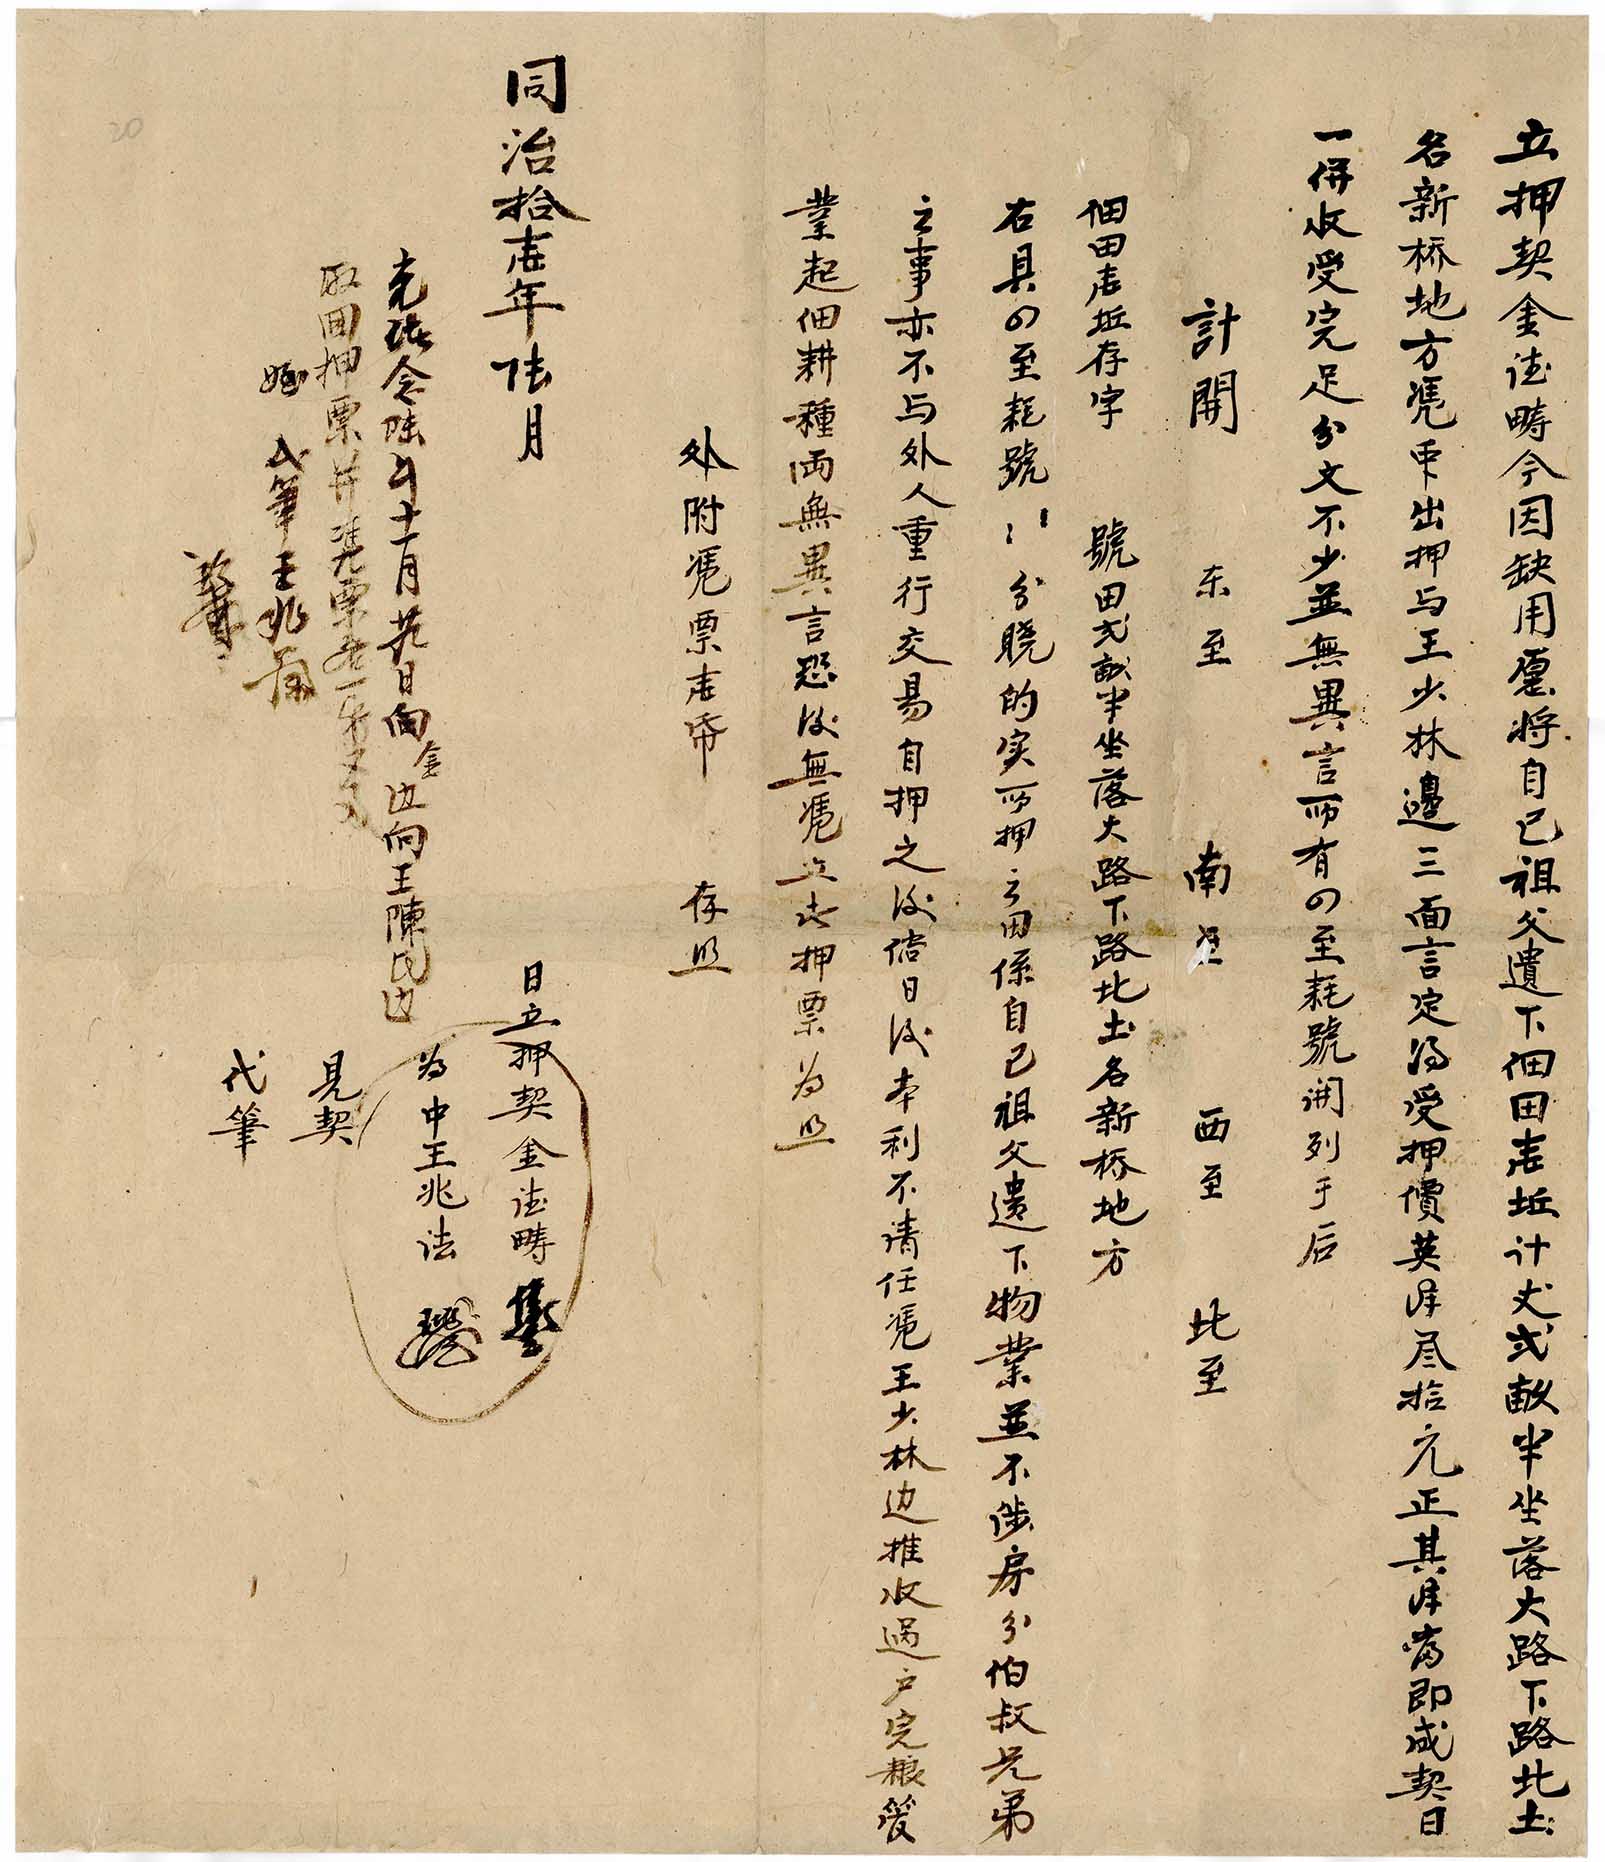 立押契金法疇今因缺用愿將自己祖父遺下佃田壱坵計丈弍畝半坐落大路下路北土
名新桥地方憑中出押与王少林邊三面言定得受押價英洋叁拾元正其洋當即成契日
一併收受完足分文不少並無異言所有四至耗號開列于后
計開 东至 南至 西至 北至
佃田壱坵存字 號田弍畝半坐落大路下路北土名新桥地方
右具四至耗號 分曉的实所押之田係自己祖父遺下物業並不涉房分伯叔兄弟
之事亦不与外人重行交易自押之後倍日後本利不清任憑王少林边推收過户完粮管
業起佃耕種両無異言恐後無憑立此押票為照
外附憑票壱帋 存照
同治拾壱年陆月 日立押契金法疇
為中王兆法
見契
代筆
光緒念陆年十一月廿 日向金边向王陳氏边
取回押票并憑票
代筆王兆